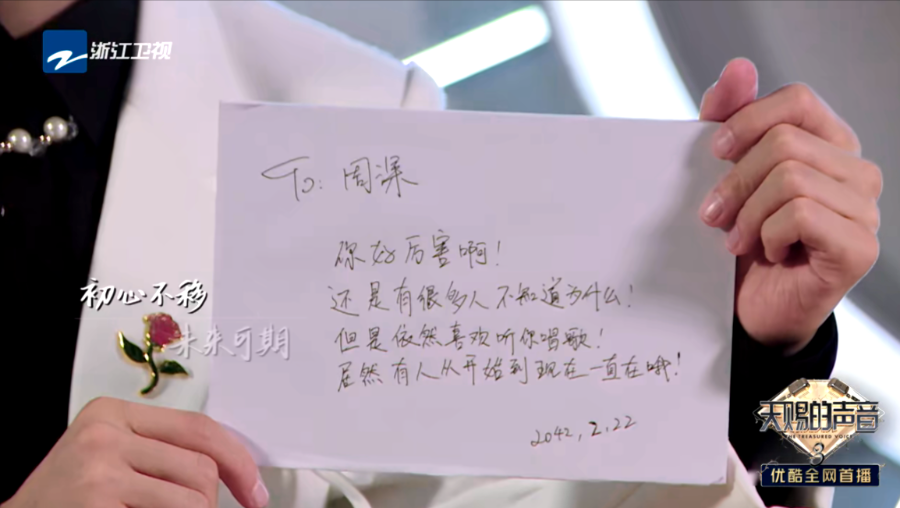 浙江卫视
To: 周深
你好厉害啊！
还是有很多人不知道为什么！
但是依然喜欢听你唱歌！
居然有人从开始到现在一直在哦！
2042.2.22
初心不移
未来可期
天赐的声音
THE TREASURED VOICE
3
优酷全网首播